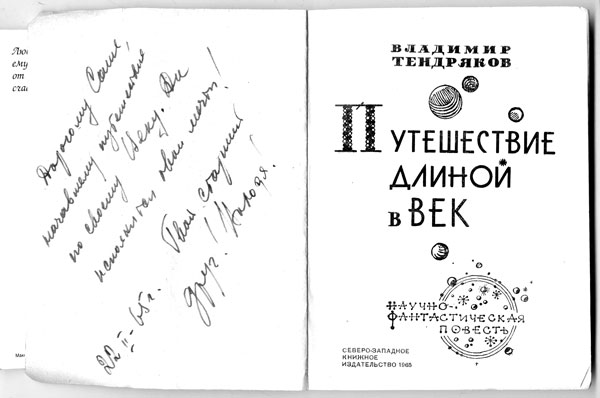 ему
от
Дорогому Саше,
начавшему путешествие
по своему Веку. Да
исполнятся твои мечты!
Твой старший
друг!
22 II-65г.
ВЛАДИМИР
ТЕНДРЯКОВ
ПУТЕШЕСТВИЕ
ДЛИНОЙ
В ВЕК
НАУЧНО-
ФАНТАСТИЧЕСКАЯ
ПОВЕСТЬ
СЕВЕРО-ЗАПАДНОЕ
КНИЖНОЕ
ИЗДАТЕЛЬСТВО 1965